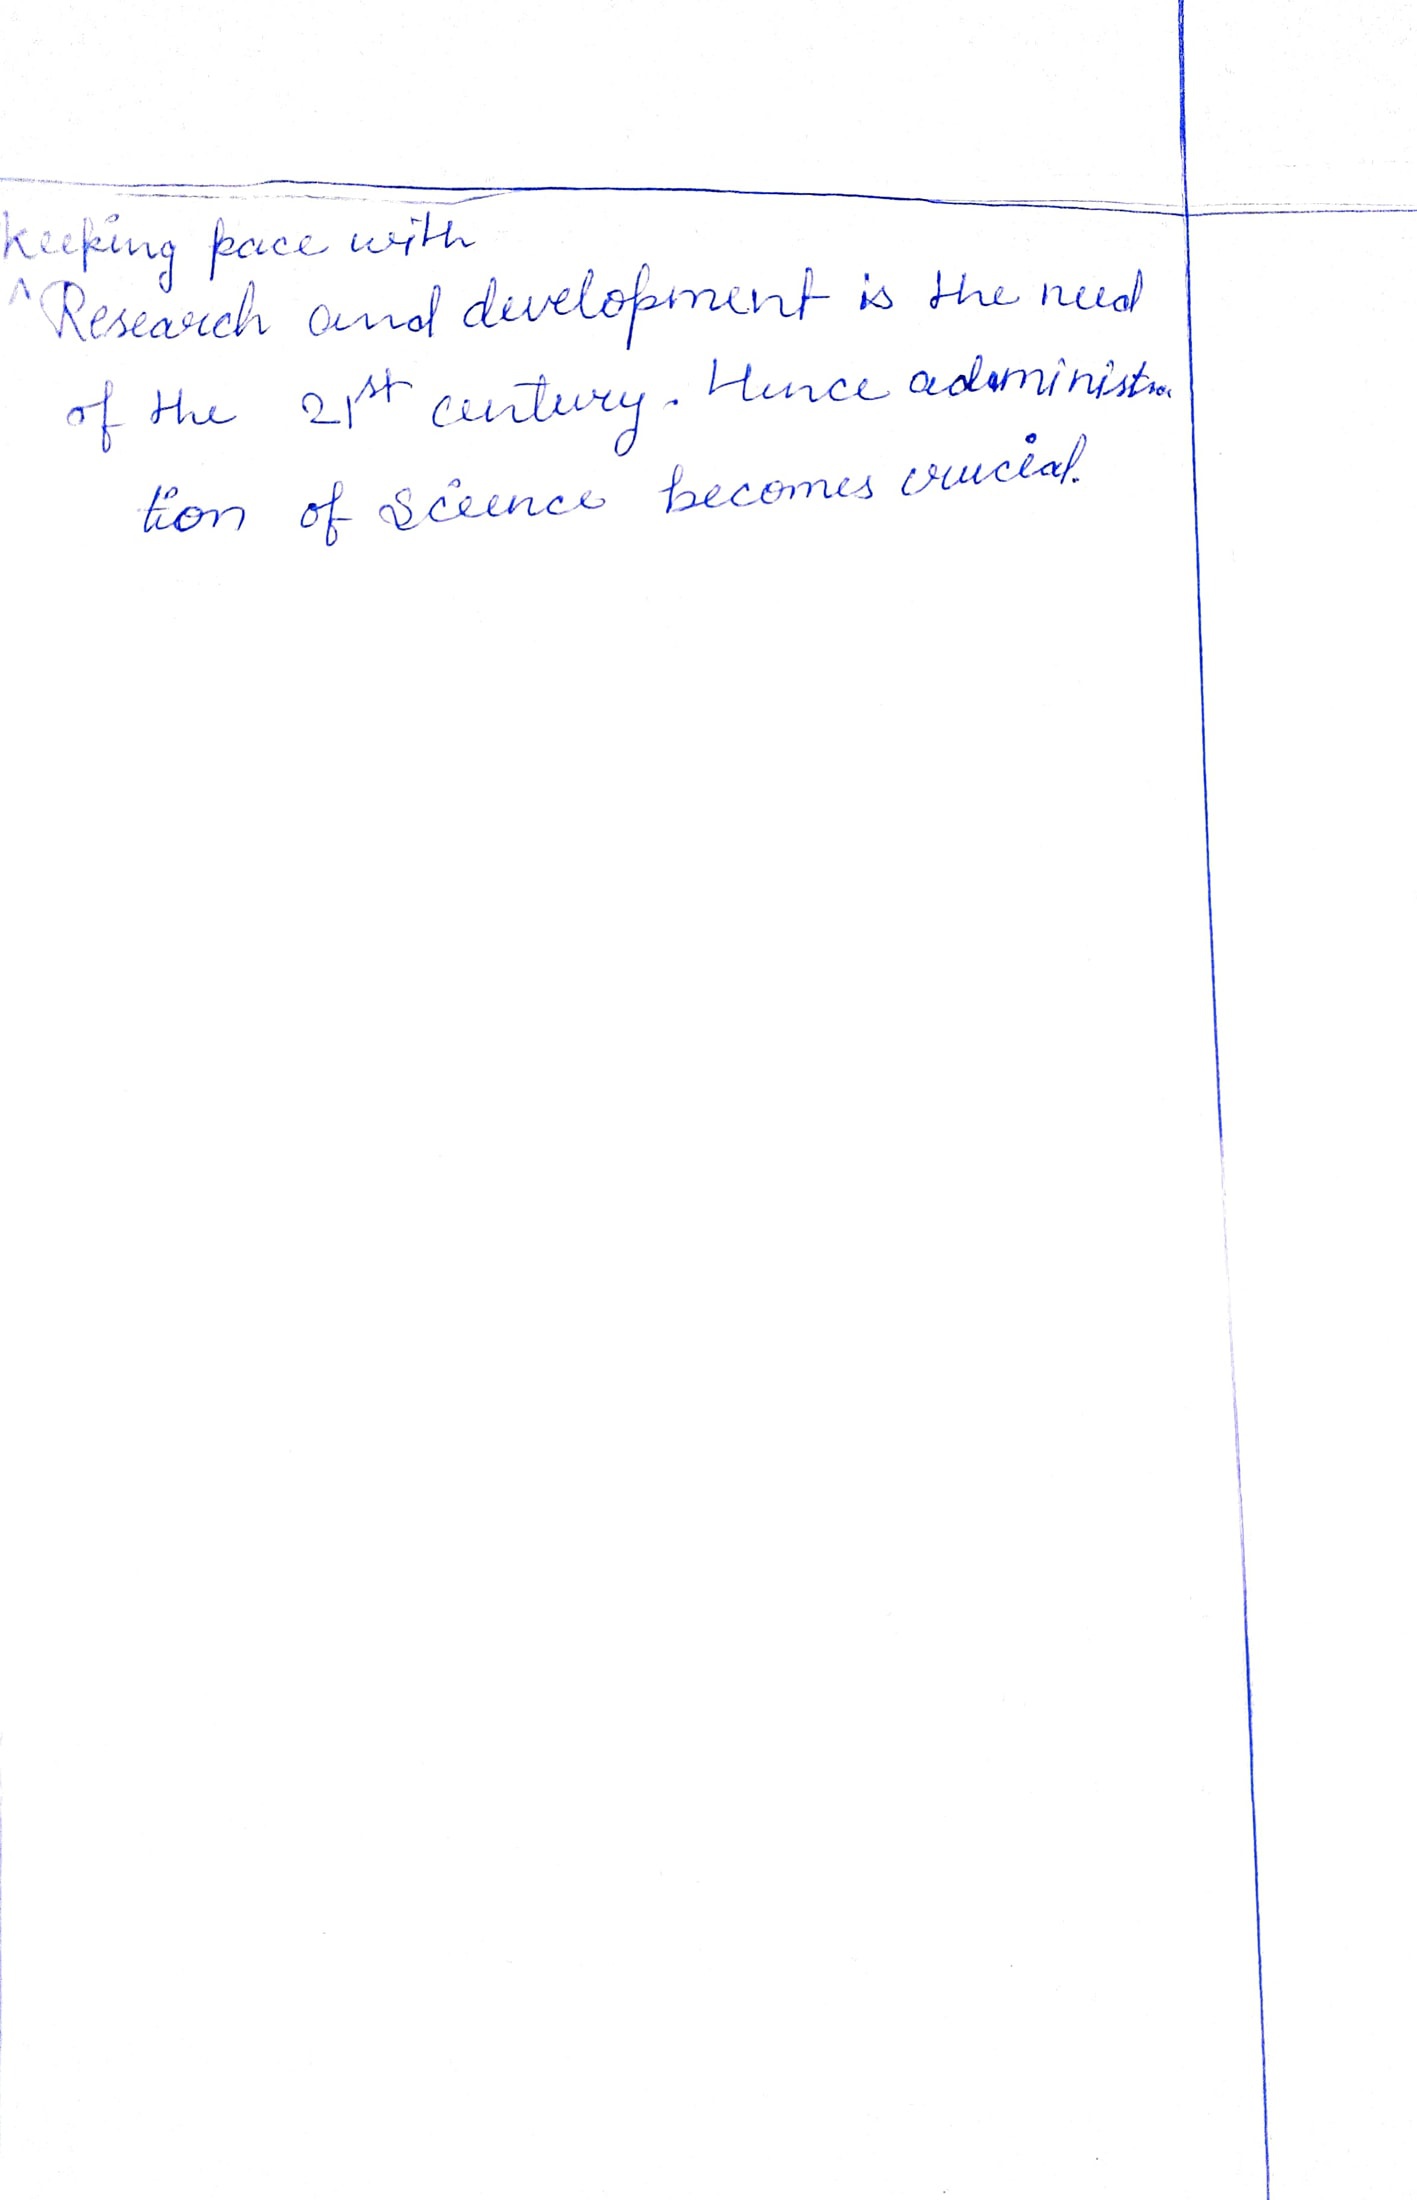 keeping pace with
^Research and development is the need
of the 21st century. Hence administra
tion of Science becomes crucial.